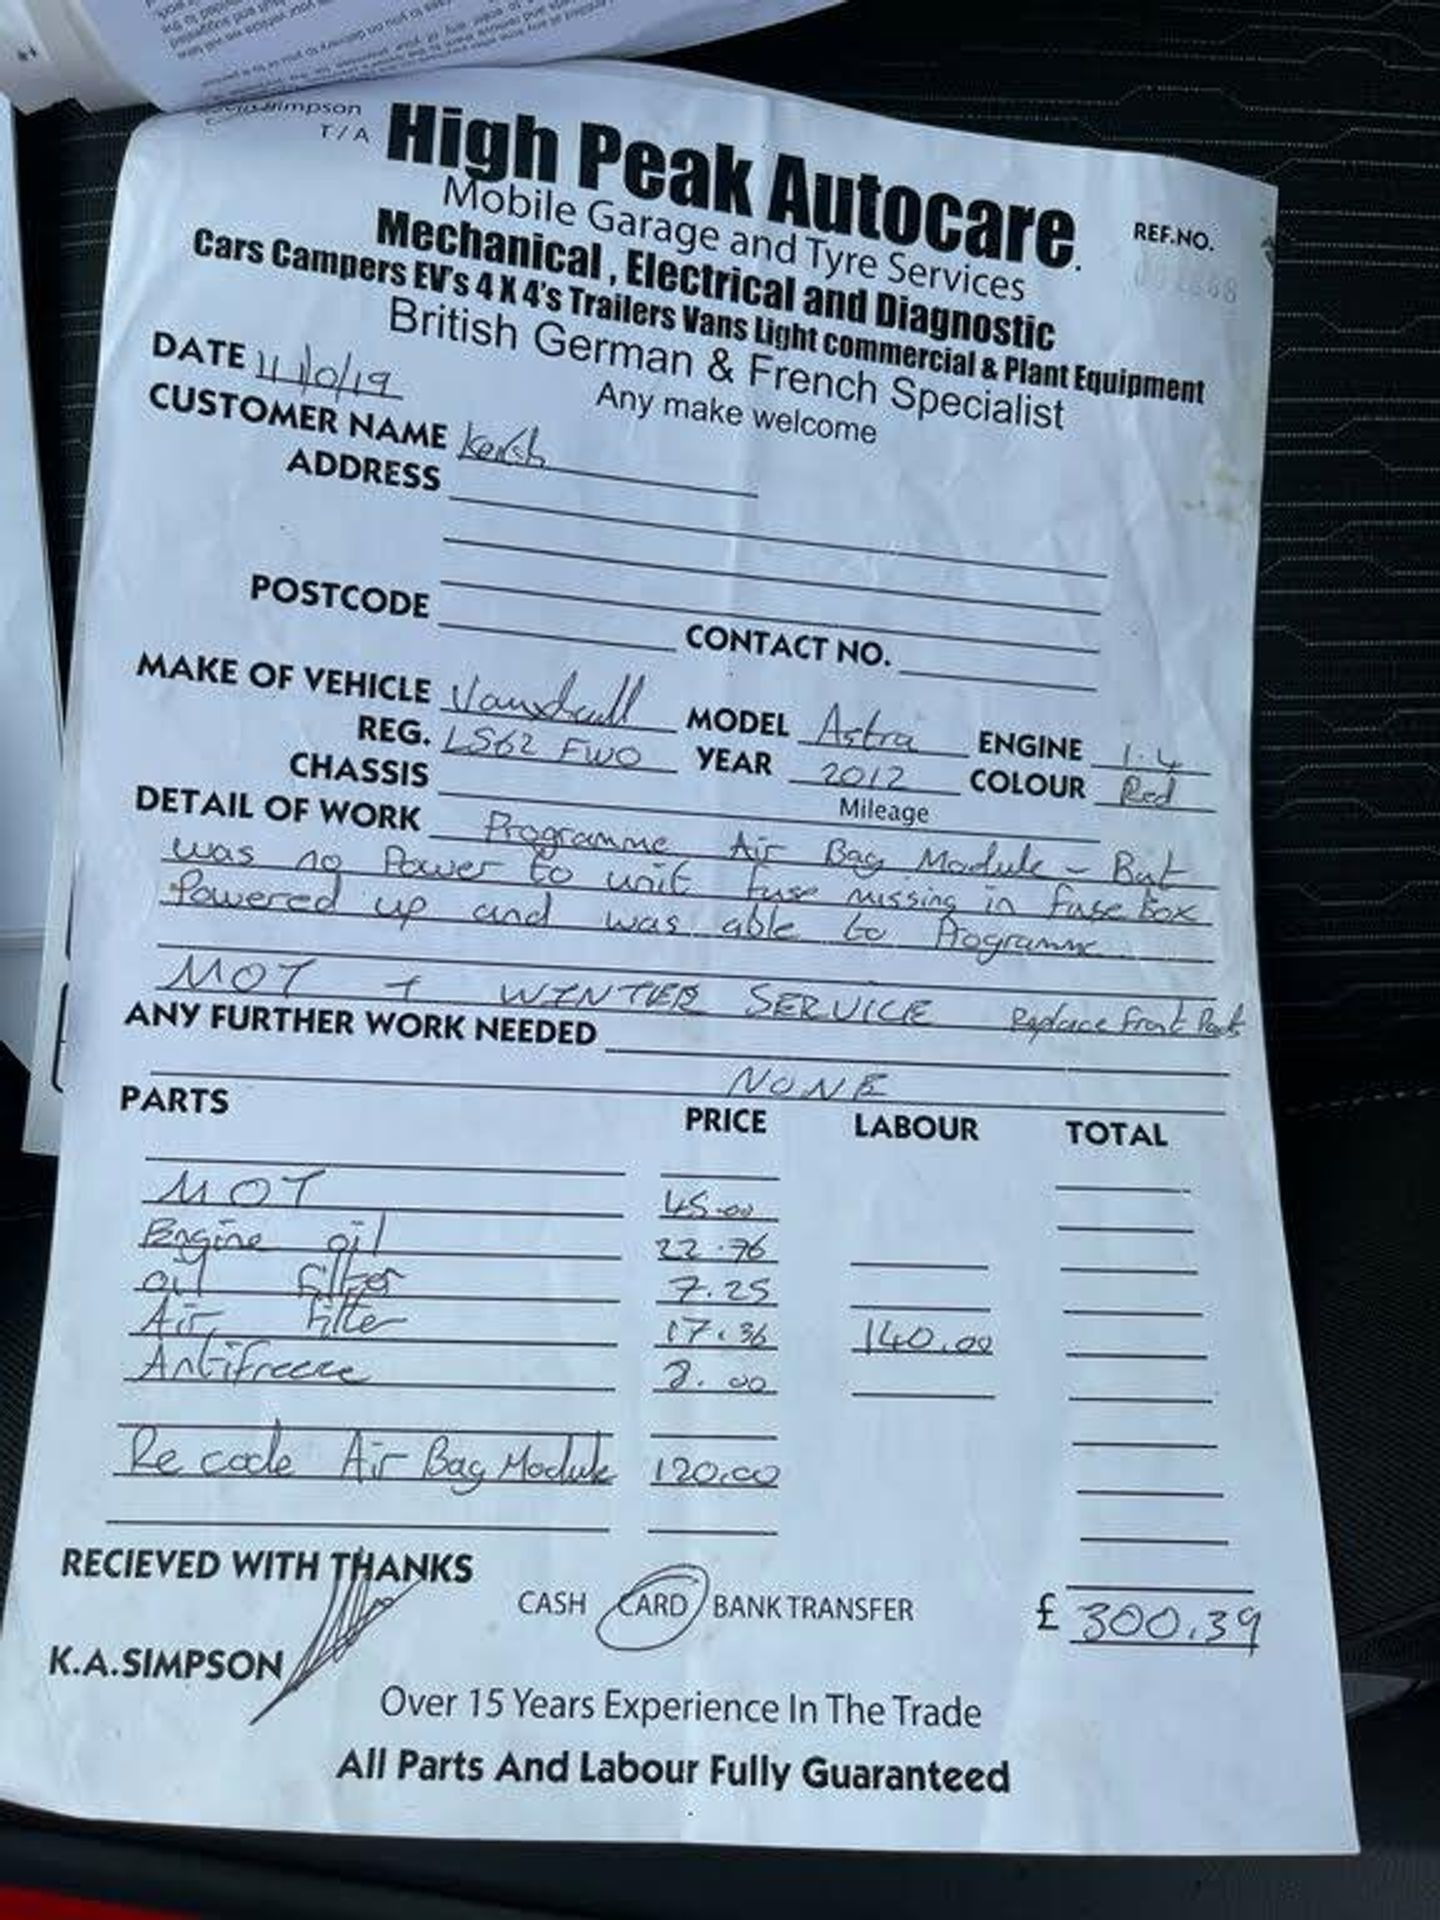 Simpson
T/A High Peak Autocare.
Mobile Garage and Tyre Services
REF.NO.
Mechanical, Electrical and Diagnostic
Cars Campers EV's 4 X 4's Trailers Vans Light commercial & Plant Equipment
British German & French Specialist
Any make welcome
DATE 11/10/19
CUSTOMER NAME
ADDRESS
POSTCODE CONTACT NO.
MAKE OF VEHICLE Vauxhall MODEL Astra ENGINE 1.4
REG. LS62 FWO YEAR 2012 COLOUR Red
CHASSIS Mileage
DETAIL OF WORK Programme Air Bag Module - But
was no Power to unit fuse missing in fuse Box
Powered up and was able to Programme
MOT + WINTER SERVICE Replace Front
ANY FURTHER WORK NEEDED
NONE
PARTS PRICE LABOUR TOTAL
MOT 45.00
Engine oil 22.76
oil filter 7.25
Air filter 17.36 140.00
Antifreeze 8.00
Re code Air Bag Module 120.00
RECIEVED WITH THANKS
CASH CARD BANK TRANSFER £ 300.39
K.A.SIMPSON
Over 15 Years Experience In The Trade
All Parts And Labour Fully Guaranteed